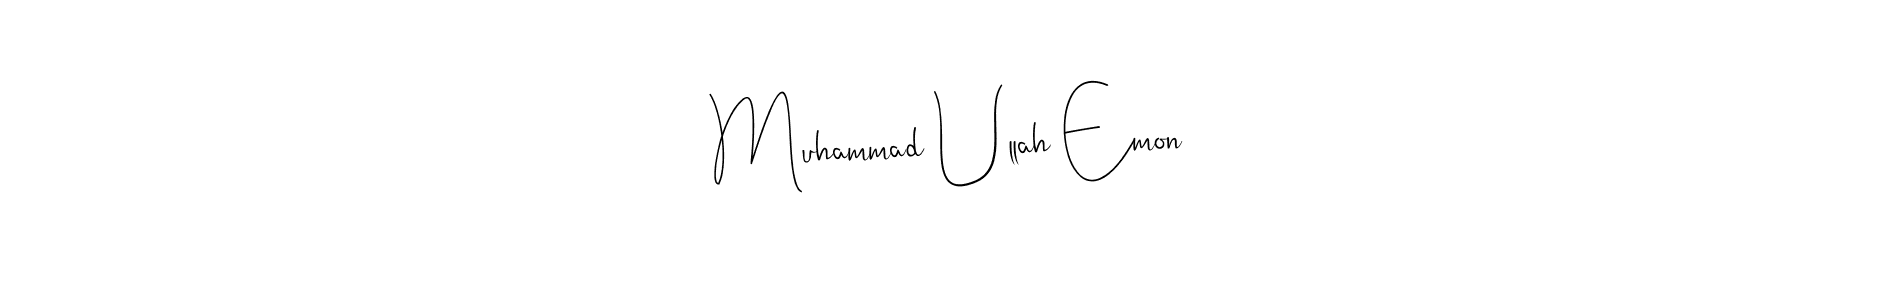 Muhammad Ullah Emon